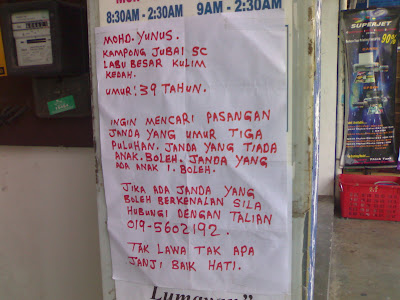 8:30AM - 2:30AM
9AM - 2:30AM
MOHD. YUNUS.
KAMPONG JUBAI SC
LABU BESAR KULIM
KEDAH.
UMUR: 39 TAHUN.
INGIN MENCARI PASANGAN
JANDA YANG UMUR TIGA
PULUHAN. JANDA YANG TIADA
ANAK. BOLEH. JANDA YANG
ADA ANAK 1. BOLEH.
JIKA ADA JANDA YANG
BOLEH BERKENALAN SILA
HUBUNGI DENGAN TALIAN
019-5602192.
TAK LAWA TAK APA
JANJI BAIK HATI.
SUPERJET
90%